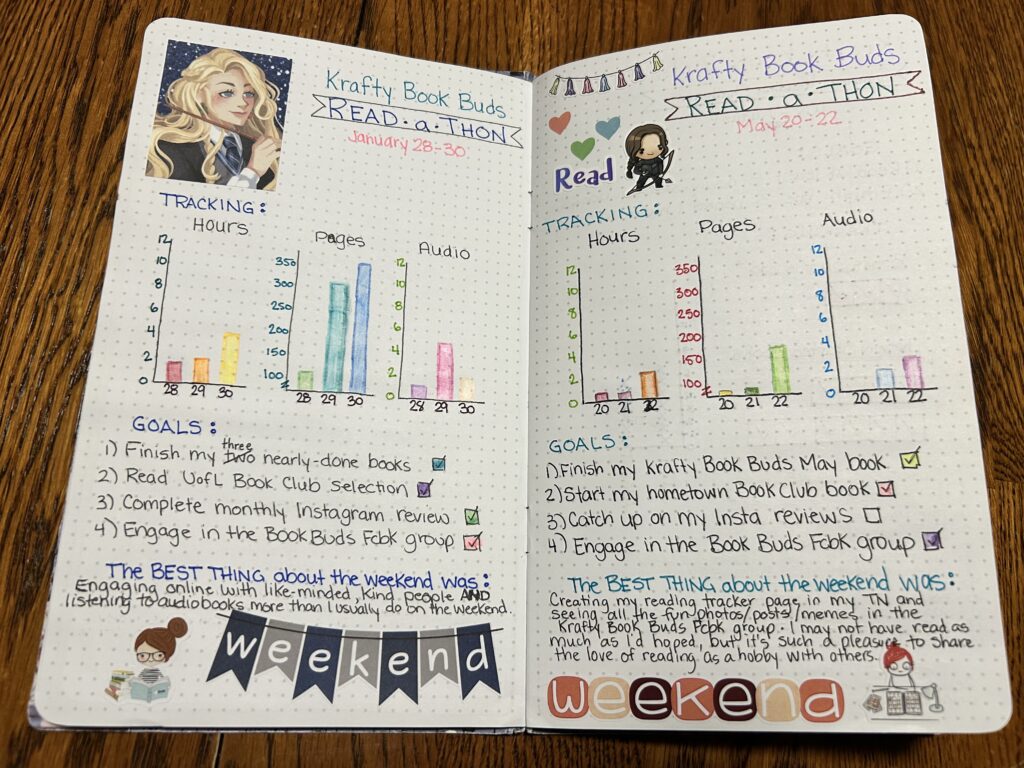 Krafty Book Buds
READ•a•THON
January 28-30
TRACKING:
Hours
12
10
8
6
4
2
0
28 29 30
Pages
350
300
250
200
150
100
28 29 30
Audio
12
10
8
6
4
2
0
28 29 30
GOALS:
three
1) Finish my two nearly-done books
2) Read UofL Book Club Selection
3) Complete monthly Instagram review
4) Engage in the Book Buds Fcbk group
The BEST THING about the weekend was:
Engaging online with like-minded, kind people AND
listening to audiobooks more than I usually do on the weekend.
weekend
Krafty Book Buds
READ•a•THON
May 20-22
Read
TRACKING:
Hours
12
10
8
6
4
2
0
20 21 22
Pages
350
300
250
200
150
100
20 21 22
Audio
12
10
8
6
4
2
0
20 21 22
GOALS:
1) Finish my Krafty Book Buds May book
2) Start my hometown Book Club book
3) Catch up on my Insta reviews
4) Engage in the Book Buds Fcbk group
The BEST THING about the weekend was:
Creating my reading tracker page in my TN and
seeing all the fun photos/posts/memes in the
Krafty Book Buds Fcbk group. I may not have read as
much as I'd hoped, but it's such a pleasure to share
the love of reading as a hobby with others.
weekend